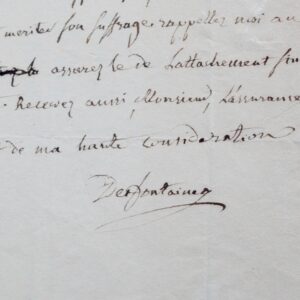 meriter son suffrage. rappellez moi au
assurez le de Lattachement sin
. Recevez aussi, Monsieur, L'assurance
de ma haute consideration
Desfontaines